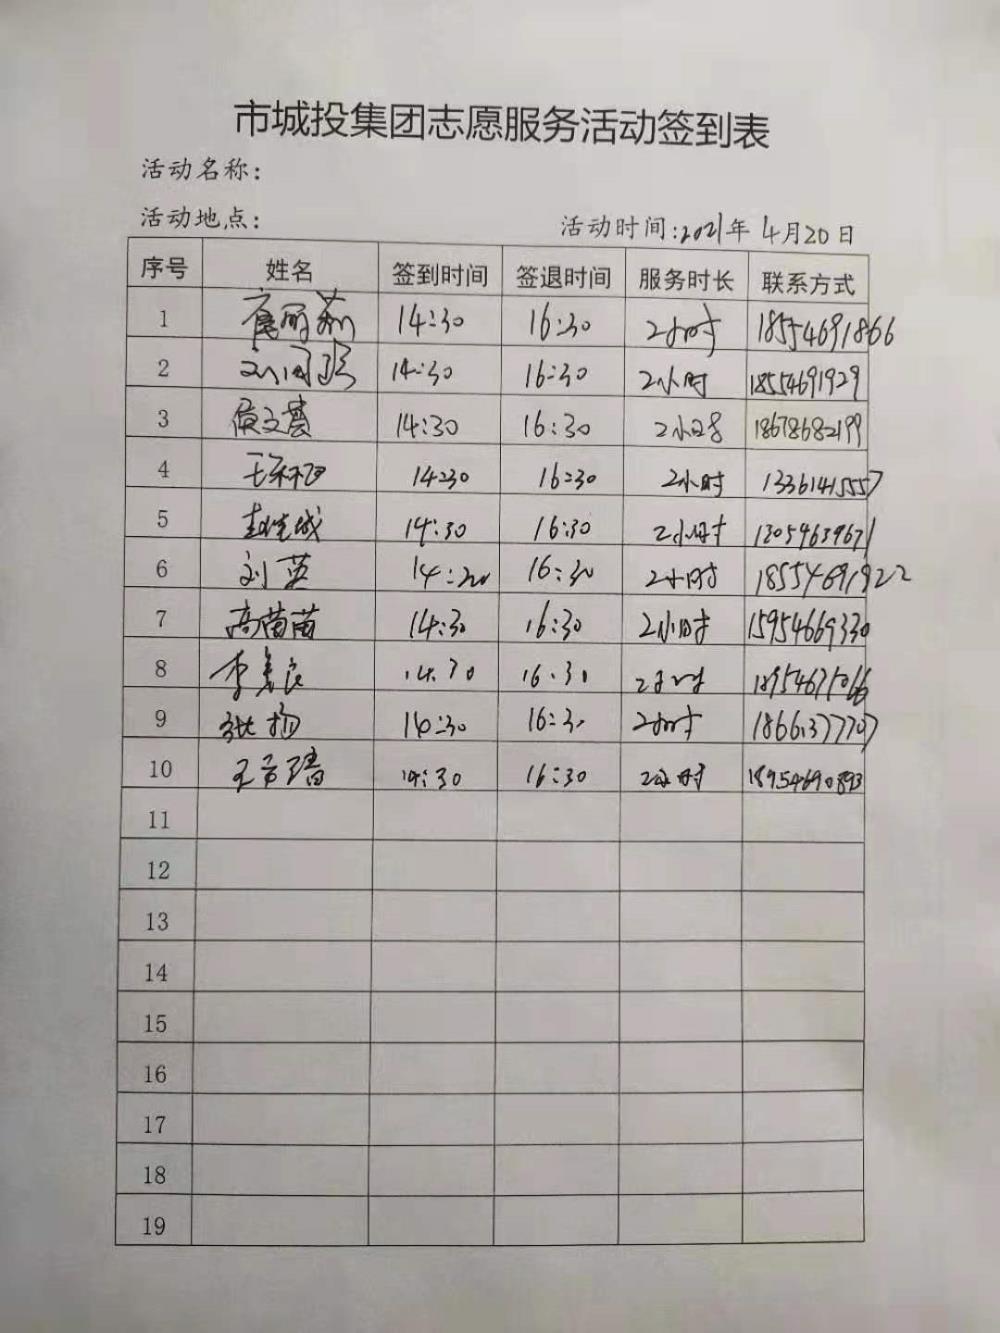 市城投集团志愿服务活动签到表
活动名称:
活动地点: 活动时间:2021年 4月20日
序号 姓名 签到时间 签退时间 服务时长 联系方式
1 14:30 16:30 2小时 18554691866
2 14:30 16:30 2小时 18554691929
3 侯文慧 14:30 16:30 2小时 18678682199
4 14:30 16:30 2小时 13361415557
5 14:30 16:30 2小时 13054639671
6 刘英 14:30 16:30 2小时 18554691922
7 高苗苗 14:30 16:30 2小时 15954669330
8 14:30 16:30 2小时
9 张扬 14:30 16:30 2小时 18661377707
10 14:30 16:30 2小时 18954690893
11
12
13
14
15
16
17
18
19